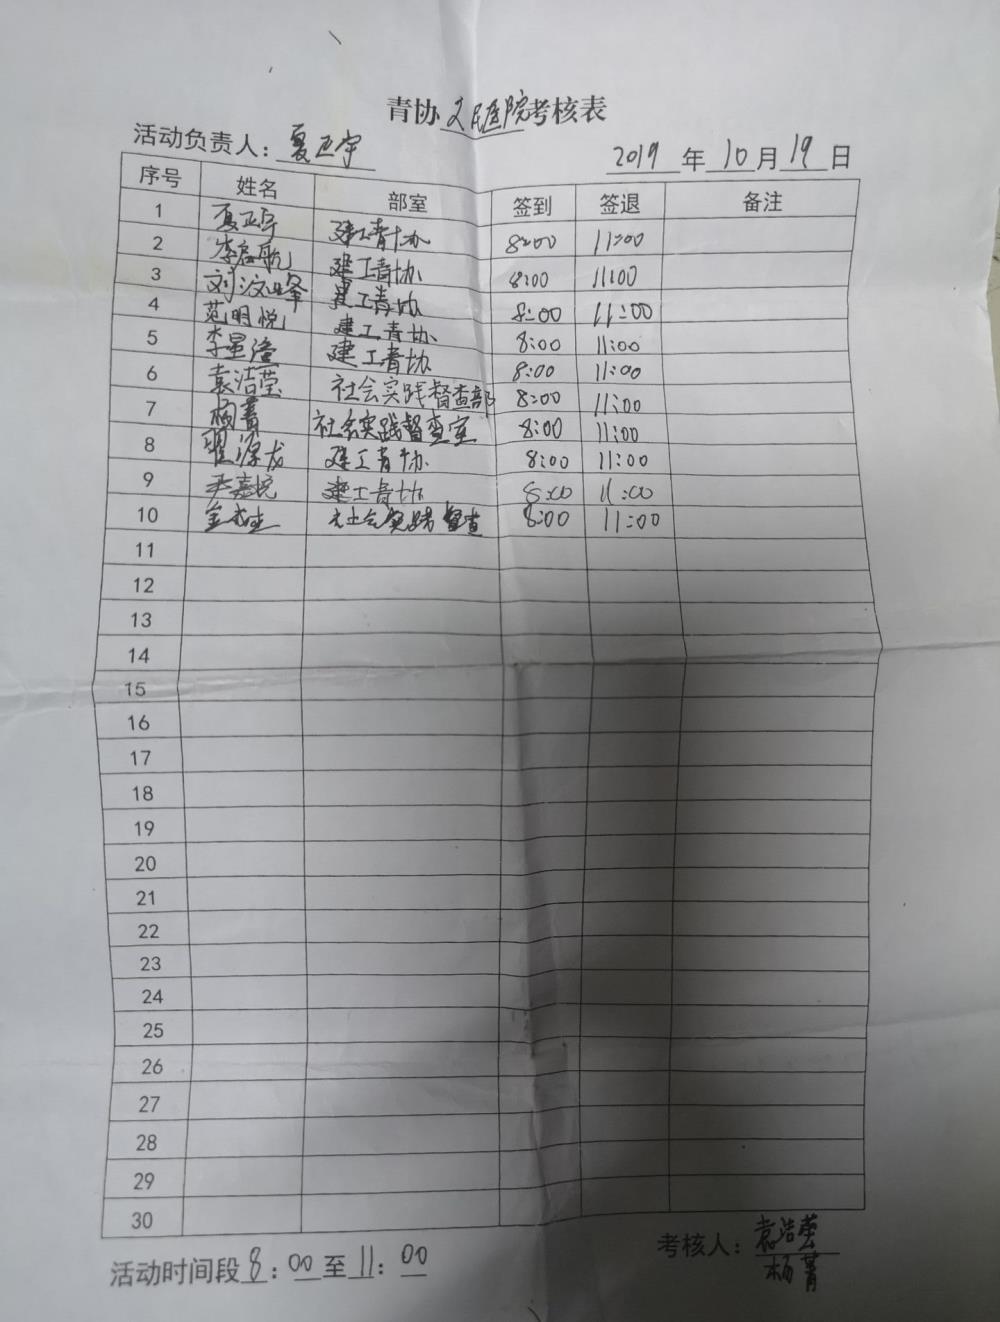 青协人民医院考核表
活动负责人：夏正宇
2019年10月19日
序号 姓名 部室 签到 签退 备注
1 夏正宇 建工青协 8:00 11:00
2 李启航 建工青协 8:00 11:00
3 刘汶峰 建工青协 8:00 11:00
4 范明悦 建工青协 8:00 11:00
5 李星潼 建工青协 8:00 11:00
6 袁洁莹 社会实践督查部 8:00 11:00
7 杨菁 社会实践督查室 8:00 11:00
8 龙 建工青协 8:00 11:00
9 尹嘉悦 建工青协 8:00 11:00
10 金 社会实践督查 8:00 11:00
11
12
13
14
15
16
17
18
19
20
21
22
23
24
25
26
27
28
29
30
考核人：袁洁莹
杨菁
活动时间段8：00至11：00